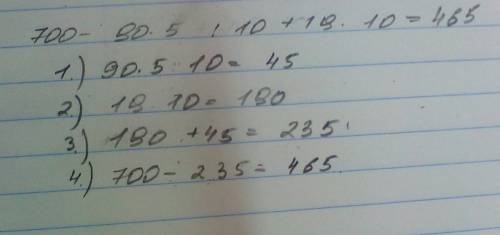 700 - 90 · 5 : 10 + 19 · 10 = 465
1.) 90 · 5 : 10 = 45
2.) 19 10 = 190
3.) 190 + 45 = 235
4.) 700 - 235 = 465.